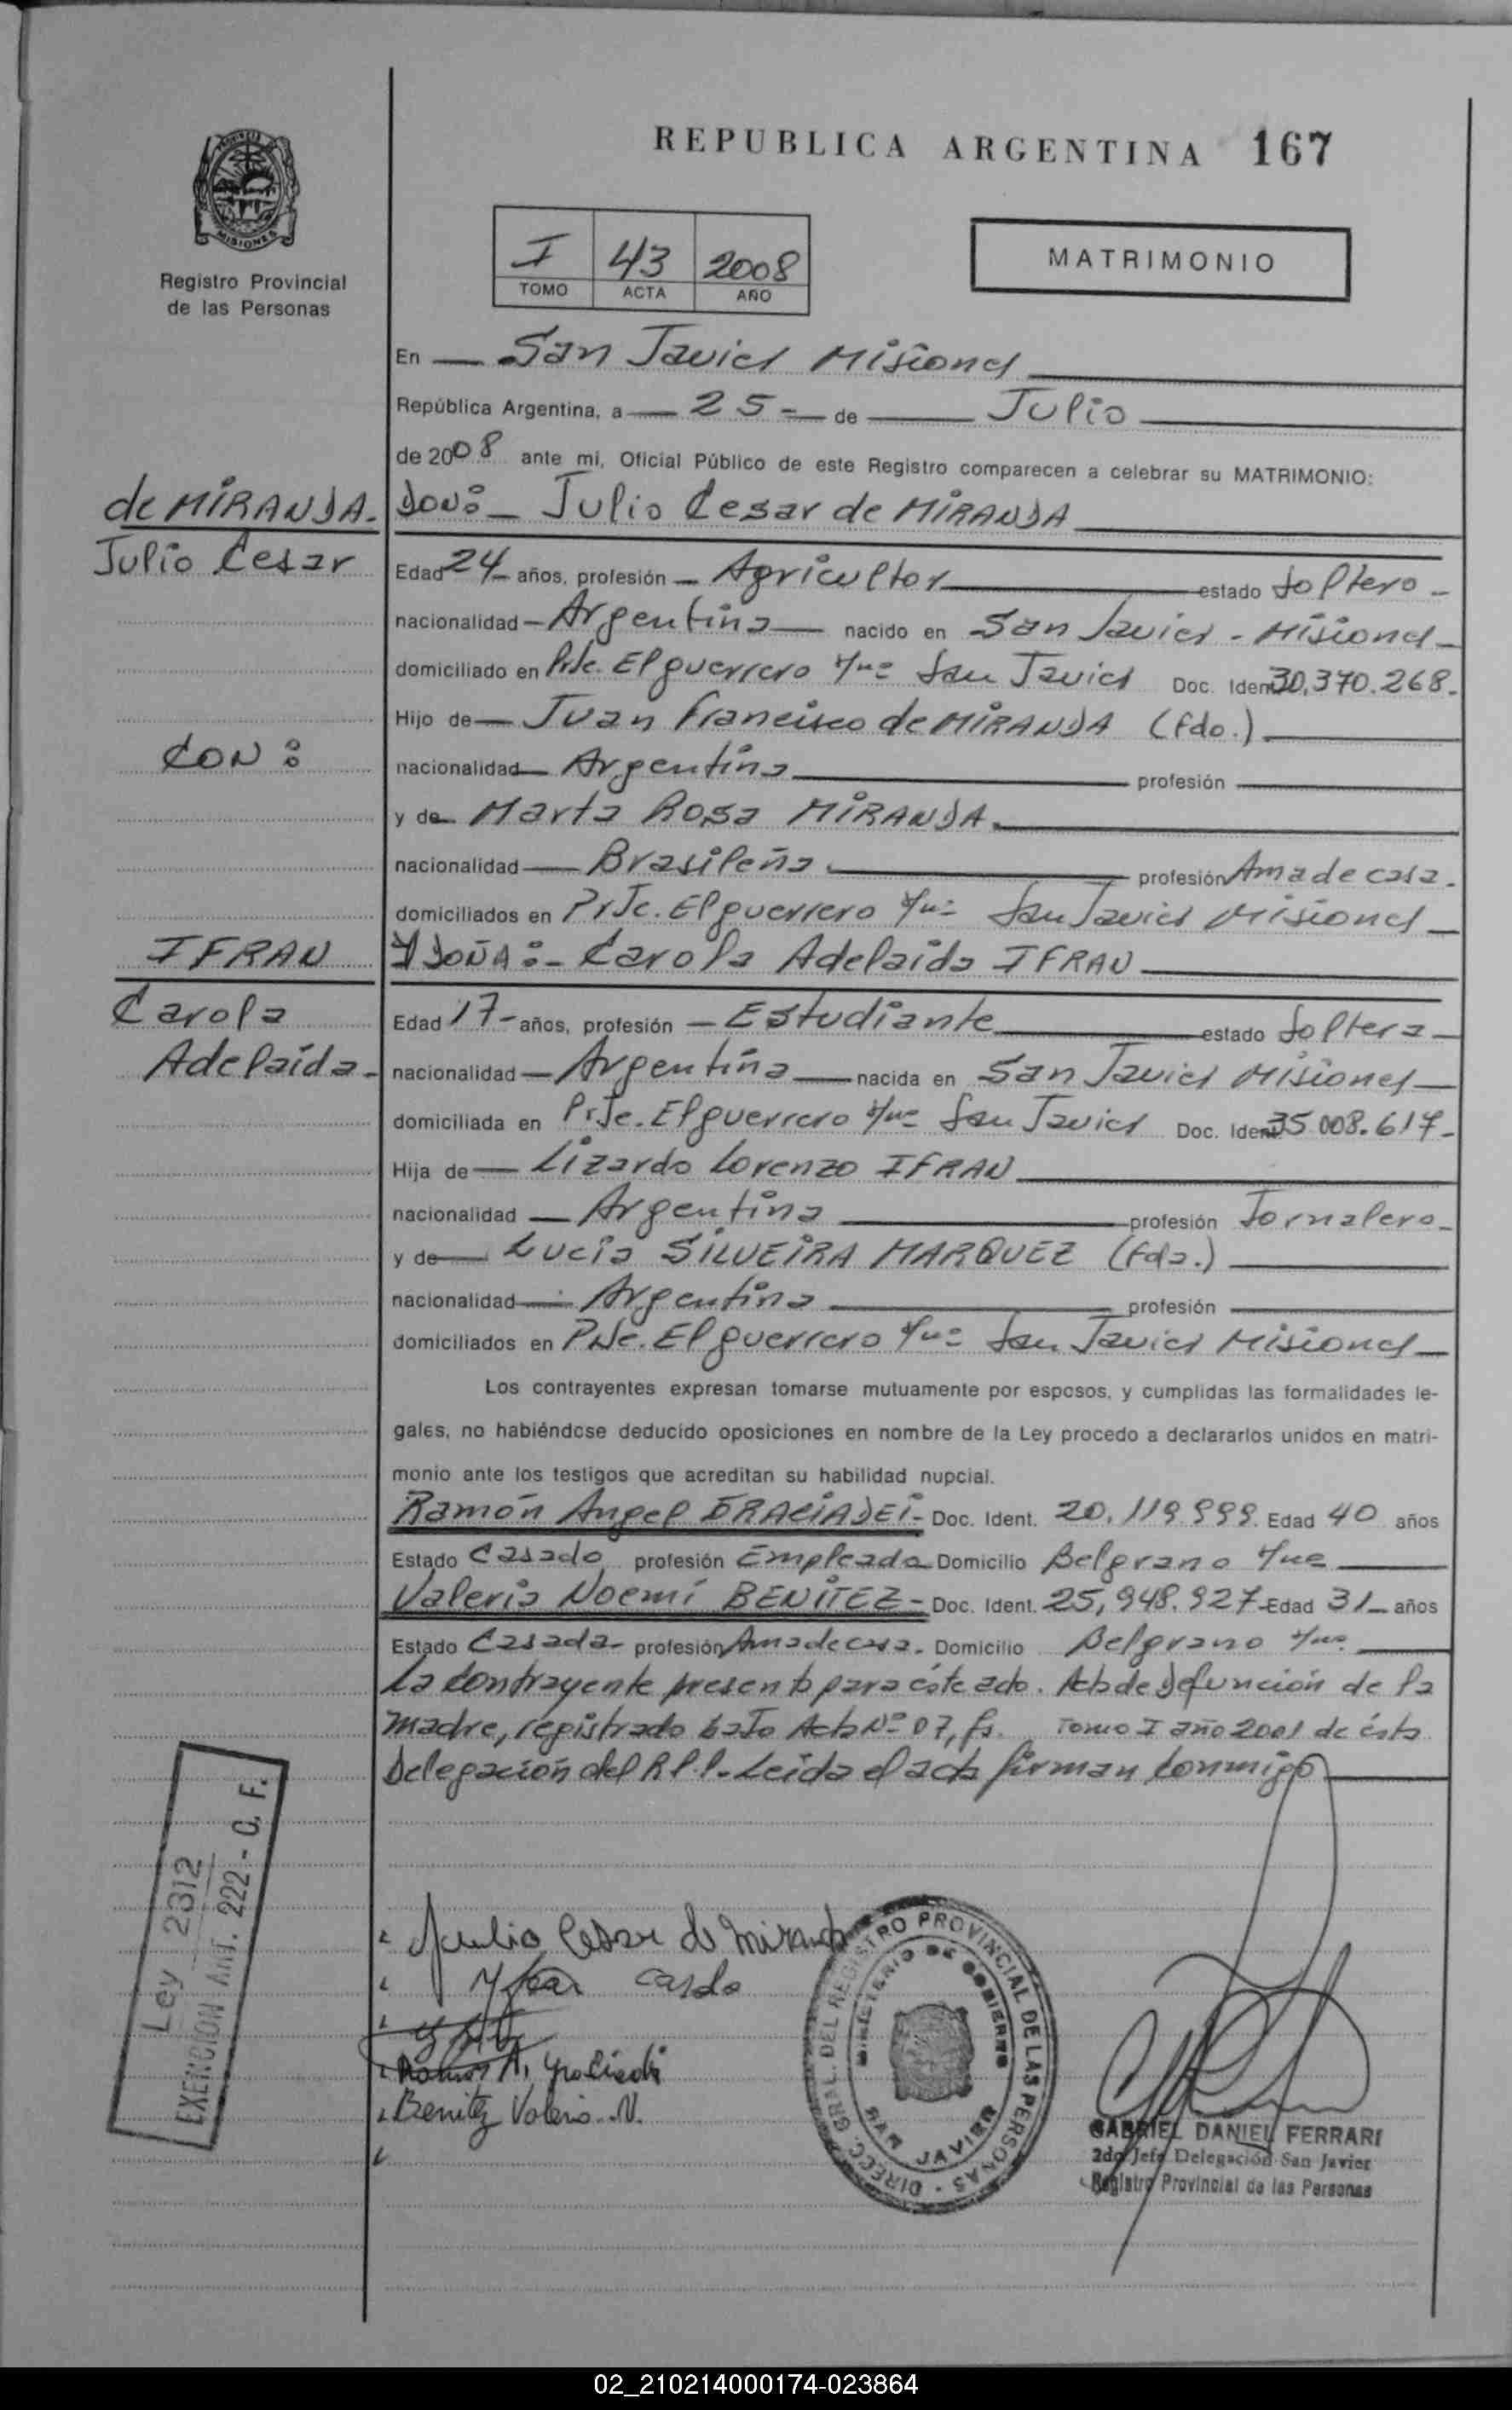 REPUBLICA ARGENTINA 167
PROVINCIA
MISIONES
Registro Provincial
de las Personas
I 43 2008
TOMO ACTA AÑO
MATRIMONIO
En San Javier Misiones
República Argentina, a 25 de Julio
de 2008 ante mi, Oficial Público de este Registro comparecen a celebrar su MATRIMONIO:
de MIRANDA.
Julio Cesar
CON:
IFRAN
Carola
Adelaida
DON: Julio Cesar de MIRANDA
Edad 24 años, profesión Agricultor estado Soltero
nacionalidad Argentina nacido en San Javier - Misiones
domiciliado en Prje. El guerrero San Javier Doc. Ident. 30.370.268.
Hijo de Juan Francisco de MIRANDA (fdo.)
nacionalidad Argentina profesión
y de Marta Rosa MIRANDA.
nacionalidad Brasileña profesión Ama de casa.
domiciliados en Prje. El guerrero San Javier Misiones
Y DOÑA: Carola Adelaida IFRAN
Edad 17 años, profesión Estudiante estado Soltera
nacionalidad Argentina nacida en San Javier Misiones
domiciliada en Prje. El guerrero San Javier Doc. Ident. 35.008.617
Hija de Lizardo Lorenzo IFRAN
nacionalidad Argentina profesión Jornalero
y de Lucia SILVEIRA MARQUEZ (fda.)
nacionalidad Argentina profesión
domiciliados en Prje. El guerrero San Javier Misiones
Los contrayentes expresan tomarse mutuamente por esposos, y cumplidas las formalidades le-
gales, no habiéndose deducido oposiciones en nombre de la Ley procedo a declararlos unidos en matri-
monio ante los testigos que acreditan su habilidad nupcial.
Ramón Angel GRACIADEI Doc. Ident. 20.119.999. Edad 40 años
Estado Casado profesión Empleado Domicilio Belgrano
Valeria Noemí BENITEZ Doc. Ident. 25,948.927 Edad 31 años
Estado Casada profesión Ama de casa. Domicilio Belgrano
La contrayente presento para éste acto. Acta de Defunción de la
madre, registrado bajo Acta Nº 07, fs. Tomo I año 2001 de ésta
Delegación del R.P.P. Leida el acta firman conmigo
Ley 2312
EXENCION Art. 222 - C. F.
Julio Cesar de Miranda
Benitez Valeria N.
DIRECC. GRAL. DEL REGISTRO PROVINCIAL DE LAS PERSONAS
MINISTERIO DE GOBIERNO
SAN JAVIER
GABRIEL DANIEL FERRARI
2do Jefe Delegación San Javier
Registro Provincial de las Personas
02_210214000174-023864